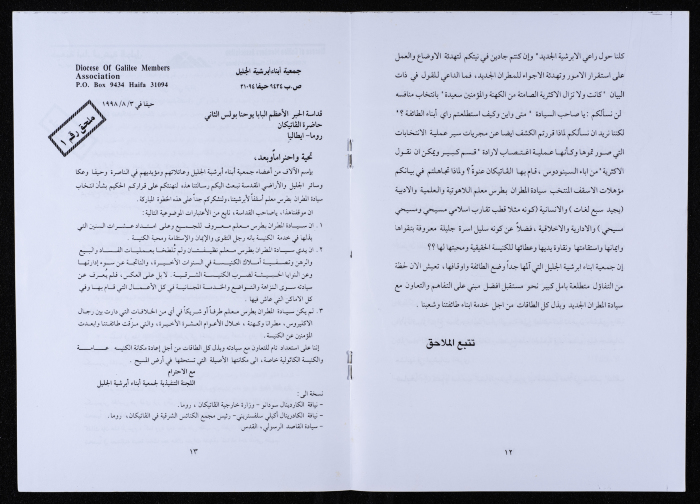 كلنا حول راعي الابرشية الجديد" وإن كنتم جادين في نيتكم لتهدئة الاوضاع والعمل
على استقرار الامور وتهدئة الاجواء للمطران الجديد، فما الداعي للقول في ذات
البيان "كانت ولا تزال الاكثرية الصامتة من الكهنة والمؤمنين سعيدة" بانتخاب منافسه
لن نسألكم : يا صاحب السيادة " متى واين وكيف استطلعتم راي أبناء الطائفة ؟"
لكننا نريد ان نسألكم لماذا قررتم الكشف ايضا عن مجريات سير عملية الانتخابات
التي صورتموها وكأنها عملية اغتصاب لارادة "قسم كبير ويمكن ان نقول
الاكثرية "من اباء السينودوس ، قام بها الڤاتيكان عنوةً ؟ ولماذا تجاهلتم في بيانكم
مؤهلات الاسقف المنتخب سيادة المطران بطرس معلم اللاهوتية والعلمية والادبية
(يجيد سبع لغات ) والانسانية (كونه مثلا قطب تقارب اسلامي مسيحي ومسيحي
مسيحي ) والادارية والاخلاقية ، فضلاً عن كونه سليل اسرة جليلة معروفة بتقواها
وايمانها واستقامتها ونقاوة يديها وعطائها للكنيسة الحقيقية ومحبتها لها ؟؟
إن جمعية ابناء ابرشية الجليل التي آلمها جداً وضع الطائفة واوقافها ، تعيش الان لحظة
من التفاؤل متطلعة بامل كبير نحو مستقبل افضل مبني على التفاهم والتعاون مع
سيادة المطران الجديد وبذل كل الطاقات من اجل خدمة ابناء طائفتنا وشعبنا .
تتبع الملاحق
١٢
Diocese Of Galilee Members
Association
P.O. Box 9434 Haifa 31094
جمعية أبناء أبرشية الجليل
ص.ب ٩٤٣٤ حيفا ٣١٠٩٤
حيفا في ١٩٩٨/٨/٣
ملحق رقم ١
قداسة الحبر الأعظم البابا يوحنا بولس الثاني
حاضرة الڤاتيكان
روما- ايطاليا
تحية واحتراماً وبعد،
بإسم الآلاف من أعضاء جمعية أبناء أبرشية الجليل وعائلاتهم ومؤيديهم في الناصرة وحيفا وعكا
وسائر الجليل والأراضي المقدسة نبعث اليكم رسالتنا هذه لنهنئكم على قراركم الحكيم بشأن انتخاب
سيادة المطران بطرس معلم أسقفاً لأبرشيتنا، ولنشكركم جداً على هذه الخطوة المباركة.
ان موقفنا هذا، يا صاحب القداسة، نابع من الأعتبارات الموضوعية التالية:
١. ان سيادة المطران بطرس معلم معروف للجميع وعلى امتداد عشرات السنين التي
بذلها في خدمة الكنيسة بانه رجل التقوى والإيمان والإستقامة ومحبة الكنيسة.
٢. ان يدي سيادة المطران بطرس معلم نظيفتان ولم تُلطخا بعمليات الفساد والبيع
والرهن وتصفية أملاك الكنيسة في السنوات الأخيرة، والناتجة عن سوء إدارتها
وعن النوايا الخبيثة لضرب الكنيسة الشرقية. لابل على العكس، فلم يُعرف عن
سيادته سوى النزاهة والتواضع والخدمة المجانية في كل الأعمال التي قام بها وفي
كل الاماكن التي عاش فيها.
٣. لم يكن سيادة المطران بطرس معلم طرفاً أو شريكاً في أي من الخلافات التي دارت بين رجال
الاكليروس، مطران وكهنة، خلال الأعوام العشرة الأخيرة، والتي مزقت طائفتنا وابعدت
المؤمنين عن الكنيسة.
إننا على استعداد تام للتعاون مع سيادته وبذل كل الطاقات من أجل إعادة مكانة الكنيسة عامة
والكنيسة الكاثوليكية خاصة، الى مكانتها الأصيلة التي تستحقها في أرض المسيح.
مع الاحترام
اللجنة التنفيذية لجمعية أبناء أبرشية الجليل
نسخة الى:
- نيافة الكاردينال سودانو - وزارة خارجية الڤاتيكان، روما.
- نيافة الكاردينال أكيلي سلفستريني- رئيس مجمع الكنائس الشرقية في الڤاتيكان، روما.
- سيادة القاصد الرسولي، القدس
١٣